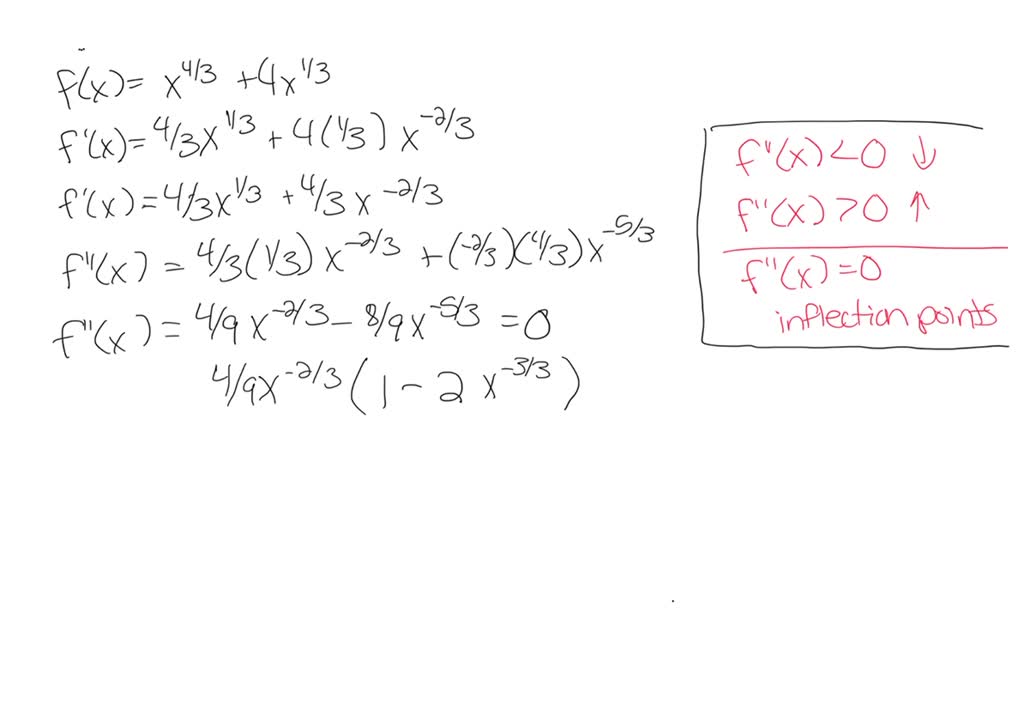 f(x) = x^{4/3} + 4x^{1/3}
f'(x) = 4/3x^{1/3} + 4(1/3)x^{-2/3}
f'(x) = 4/3x^{1/3} + 4/3x^{-2/3}
f''(x) = 4/3(1/3)x^{-2/3} + (-2/3)(4/3)x^{-5/3}
f''(x) = 4/9x^{-2/3} - 8/9x^{-5/3} = 0
4/9x^{-2/3}(1 - 2x^{-3/3})
f''(x) < 0 ↓
f''(x) > 0 ↑
f''(x) = 0
inflection points